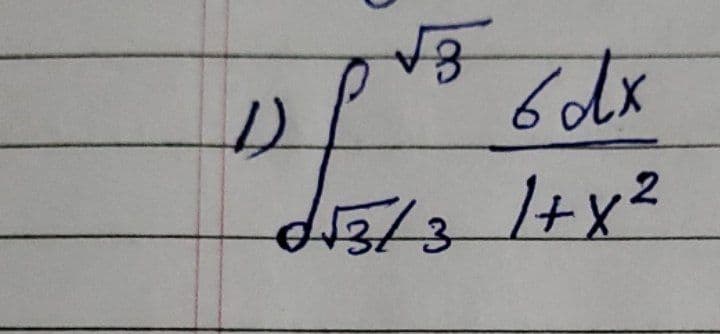 1) ∫_{√3/3}^{√3} 6dx / 1+x²